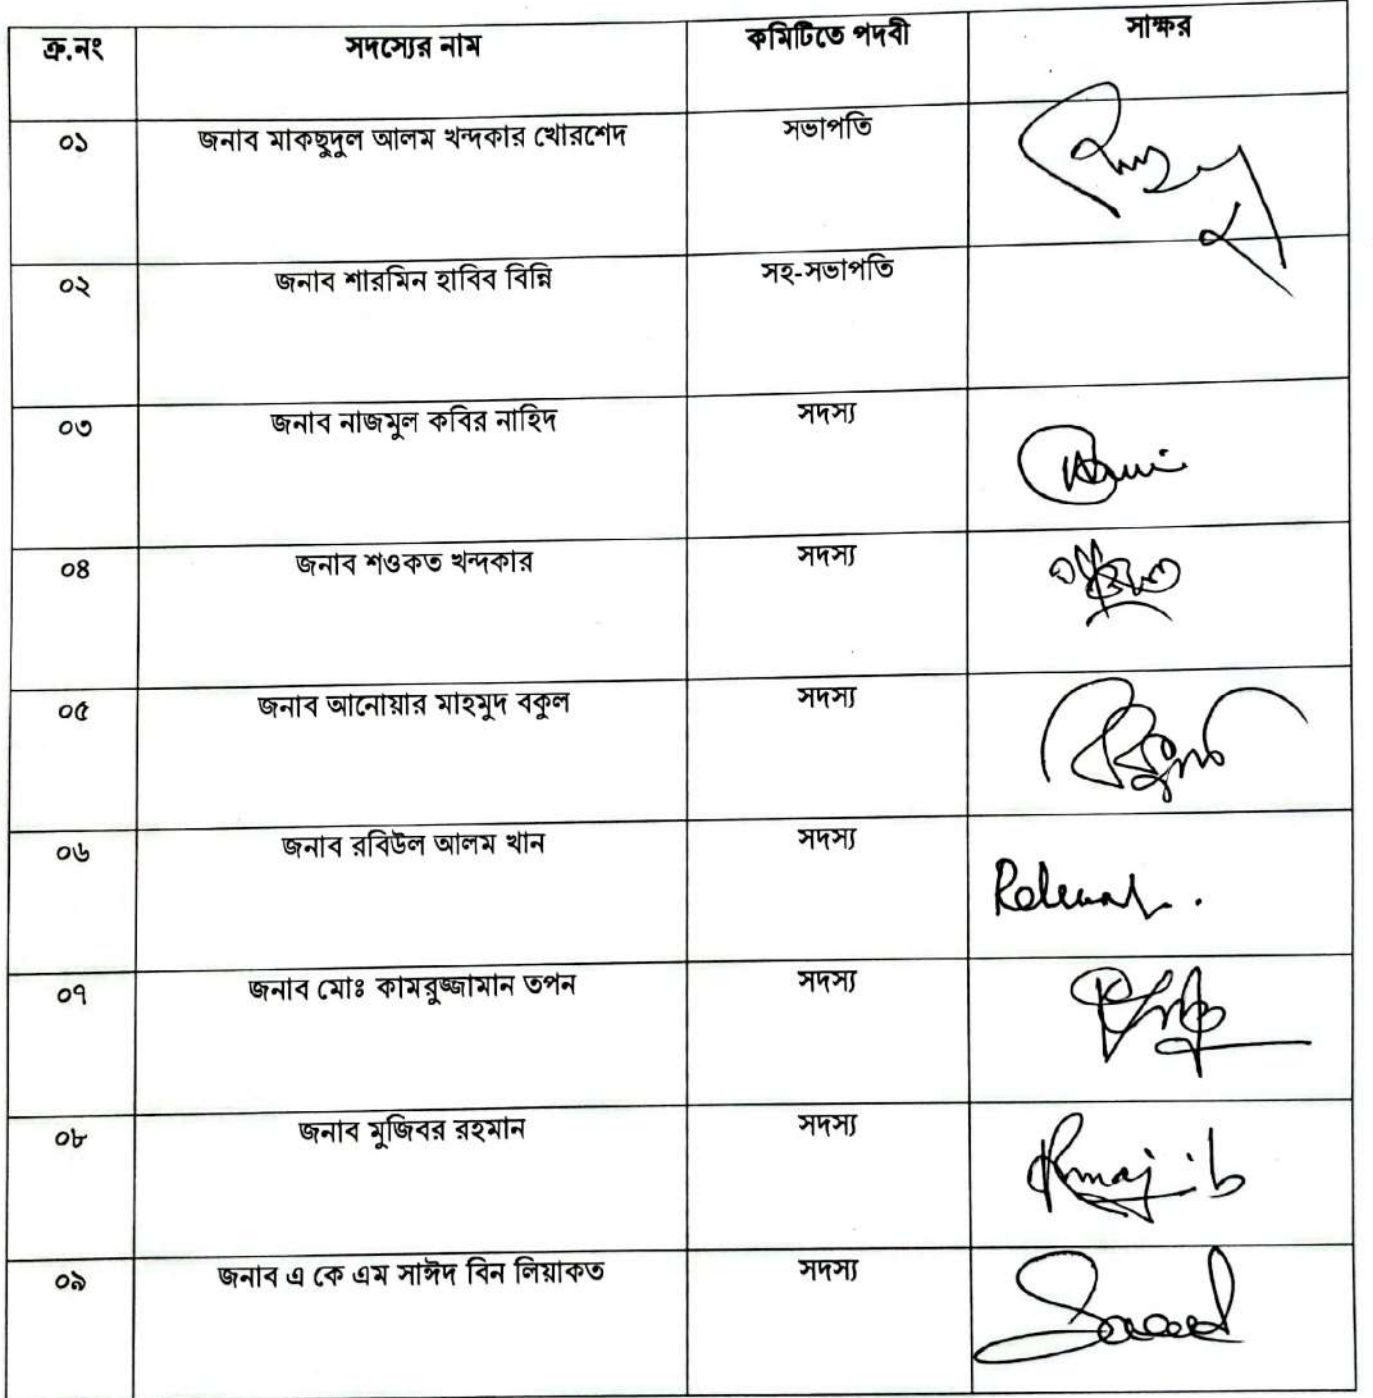 ক্র.নং সদস্যের নাম কমিটিতে পদবী সাক্ষর
০১ জনাব মাকছুদুল আলম খন্দকার খোরশেদ সভাপতি
০২ জনাব শারমিন হাবিব বিন্নি সহ-সভাপতি
০৩ জনাব নাজমুল কবির নাহিদ সদস্য
০৪ জনাব শওকত খন্দকার সদস্য
০৫ জনাব আনোয়ার মাহমুদ বকুল সদস্য
০৬ জনাব রবিউল আলম খান সদস্য
০৭ জনাব মোঃ কামরুজ্জামান তপন সদস্য
০৮ জনাব মুজিবর রহমান সদস্য
০৯ জনাব এ কে এম সাঈদ বিন লিয়াকত সদস্য